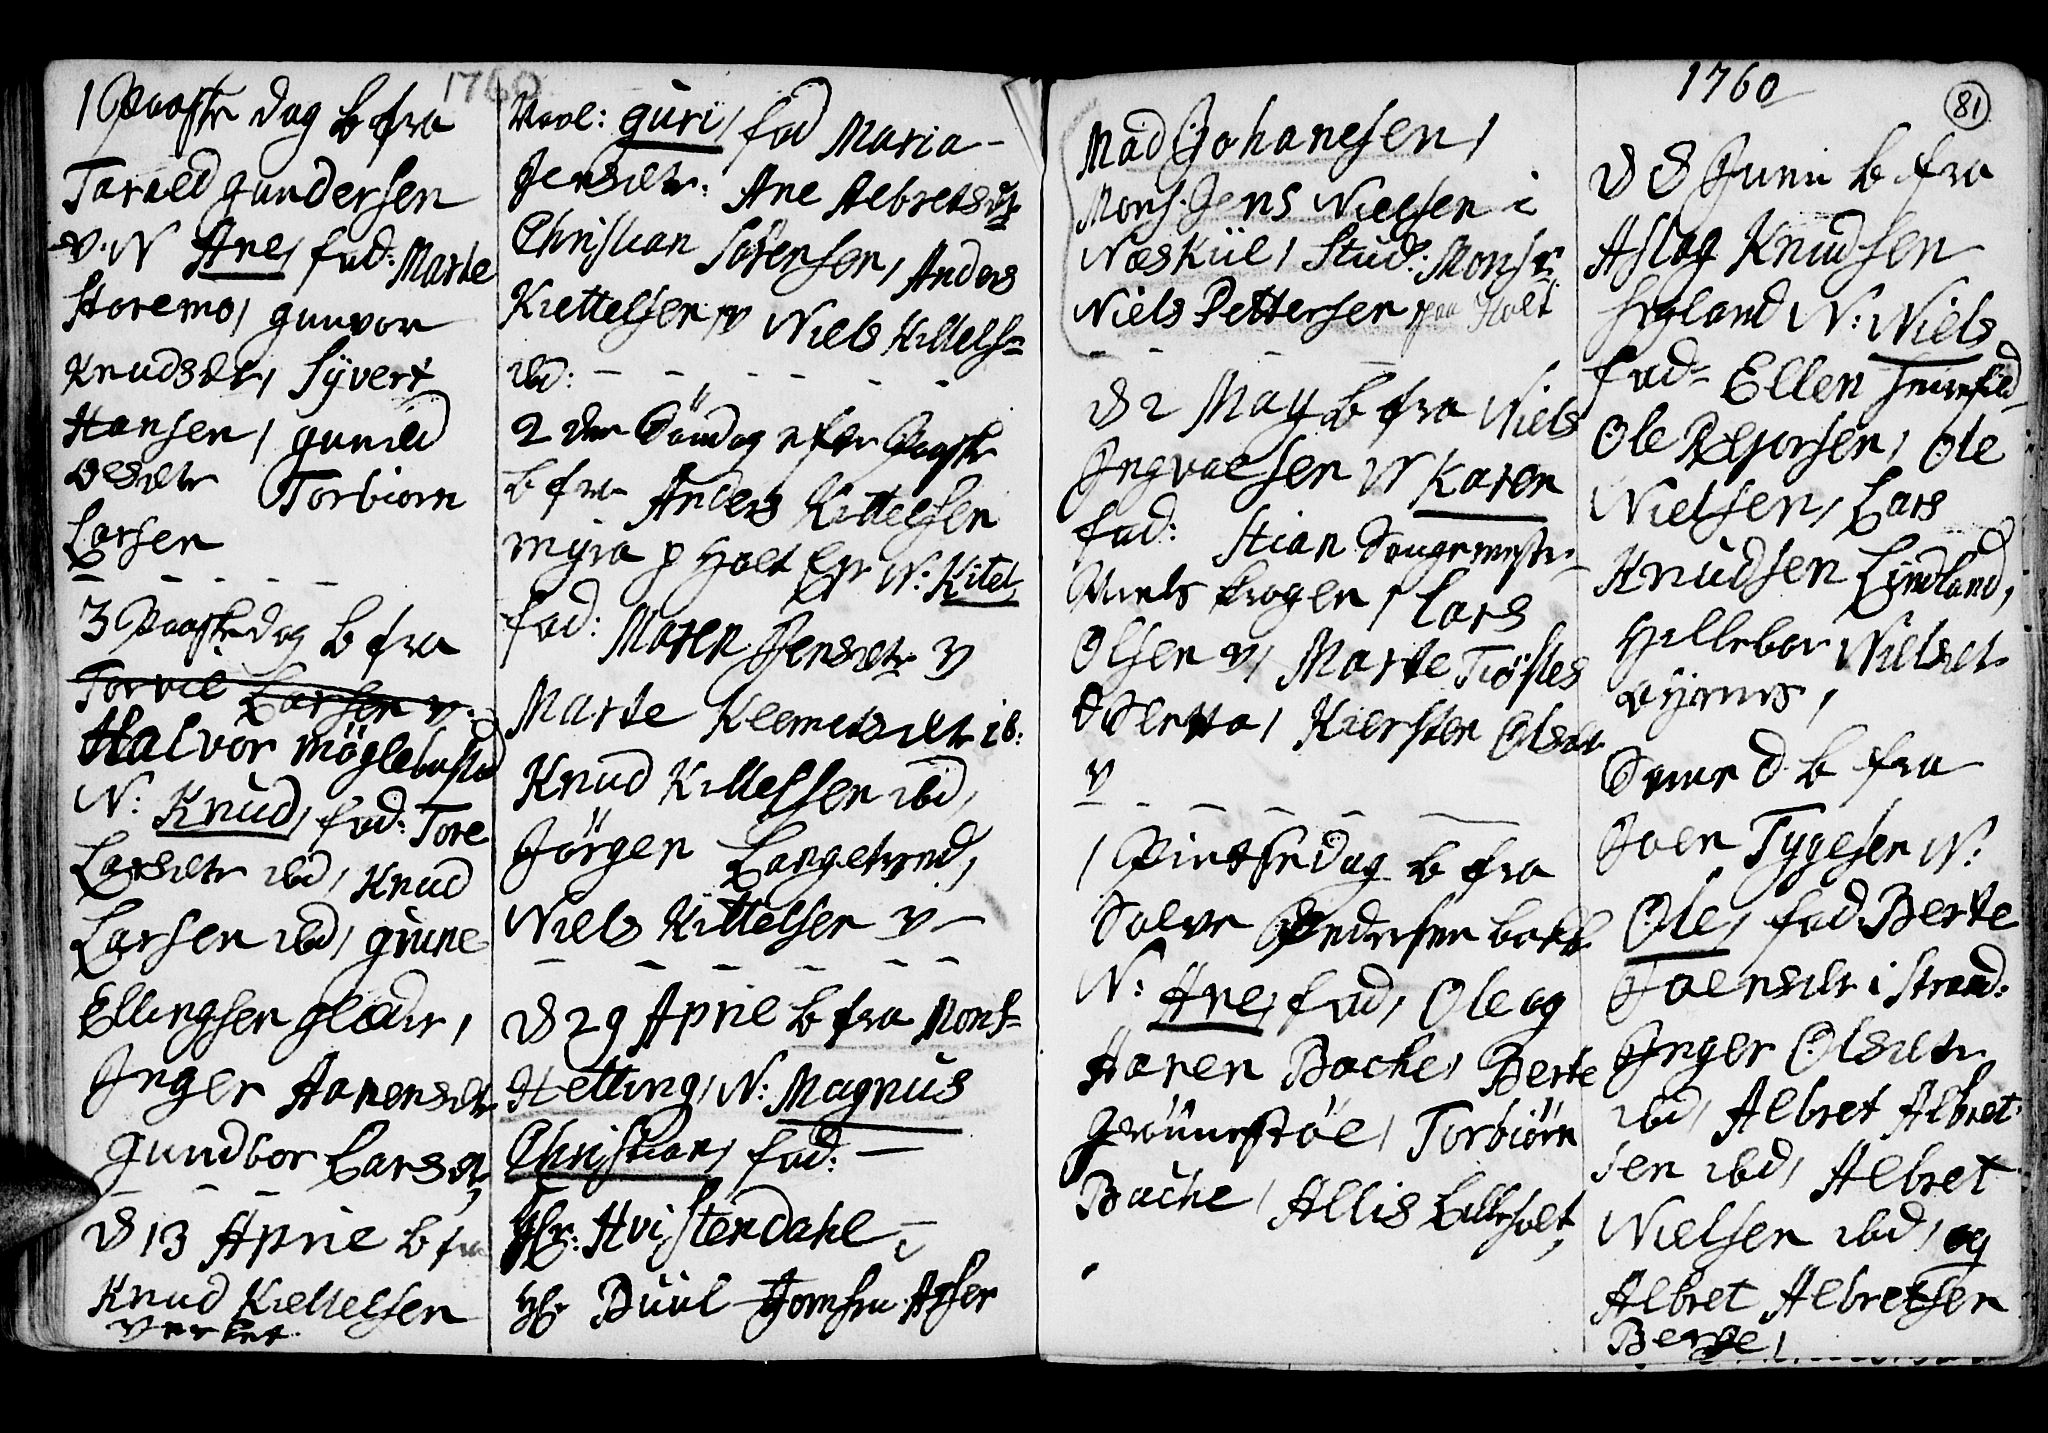 1760
1 Paaske dag b fra
Tarald gundersen
v. N Ane, fad: Marte
Storemo, gunvor
Knudsdtr, Syvert
Hansen, gunild
Olsdtr Torbiorn
Larsen
3 Paaskedag b fra
Tarvel Larsen v.
Halvor möglebustad
N: Knud, fad: Tore
Larsdtr ibd, Knud
Larsen ibd, giune
Ellingsen
Inger Aanensdtr
gundbor Larsdt,
D 13 April b fra
Knud Kiettelsen
verket
Navl: guri, fad Maria
Jensdtr: Ane Albretsdtr
Christian Sörensen, Anders
Kiettelsen, v Niels Kittels=
ibd:
2 den Söndag efter Paaske
b fra Anders Kittelsen
myra p Holt N: Kitel,
fad: Maren Jensdtr v
Marte Klemetsdtr ib:
Knud Kittelsen ibd,
Jörgen Langetved,
Niels Kittelsen v
D 29 April b fra Mons=
Hetting, N: Magnus
Christian, fad:
Hr: Hvistendahl,
Hr Buul Jomfru Asser
1760
81
Mad Johanesen,
Mons. Jens Nielsen i
Næskiil, Stud: Monsr
Niels Pettersen paa Holt
D 2 May b fra Niels
Ingvalsen N Karen
fad: Stian
Niels Krogen, Lars
Olsen v, Marte Tiöstes
Kiersten Olsdtr
v
1 Pintsedag b fra
Salve Pedersen
N: Ane, fad, Ole og
Aanen Bache, Berte
Torbiörn
Bache, Allis Lilleholt,
D 8 Juni b fra
Aslag Knudsen
N: Niels
fad= Ellen
Ole Reiorsen, Ole
Nielsen, Lars
Knudsen Lindland,
Hillebor Nielsdtr
Same D b fra
Joen Tygesen N:
Ole, fad Berte
Joensdtr i Strand:
Inger Olsdtr
ibd, Albret Albret
sen ibd, Albret
Nielsen ibd, og
Albret Albretsen
Berge,